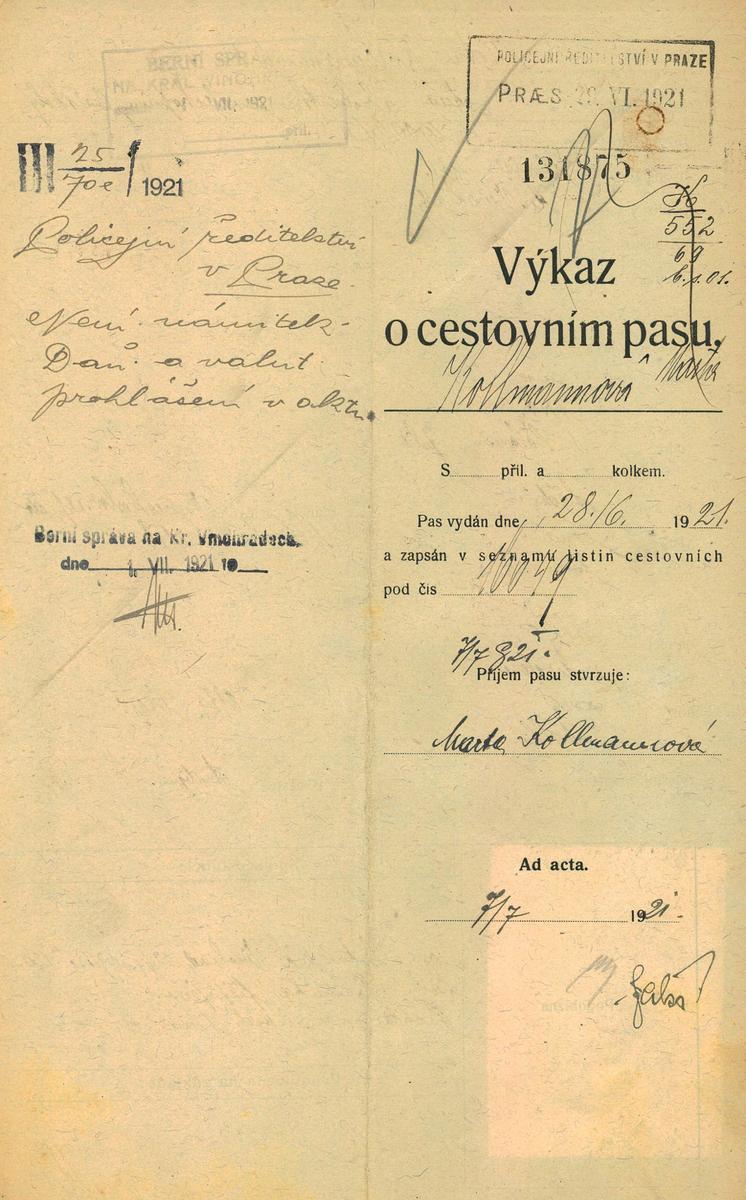 BERNÍ SPRÁ
NA KRÁL. VINO
příl.
III 25/70e 1921
Policejní ředitelství
v Praze.
Není námitek.
Daň. a valut.
prohlášení v aktu.
Berní správa na Kr. Vinohradech.
dne 1. VII. 1921 19
POLICEJNÍ ŘEDITELSTVÍ V PRAZE
PRÆS 28. VI. 1921
131875
K
552
69
Výkaz
o cestovním pasu.
Kollmannová Marta
S příl. a kolkem.
Pas vydán dne 28./6. 1921.
a zapsán v seznamu listin cestovních
pod čís
7/7 921.
Příjem pasu stvrzuje:
Marta Kollmannová
Ad acta.
7/7 1921.